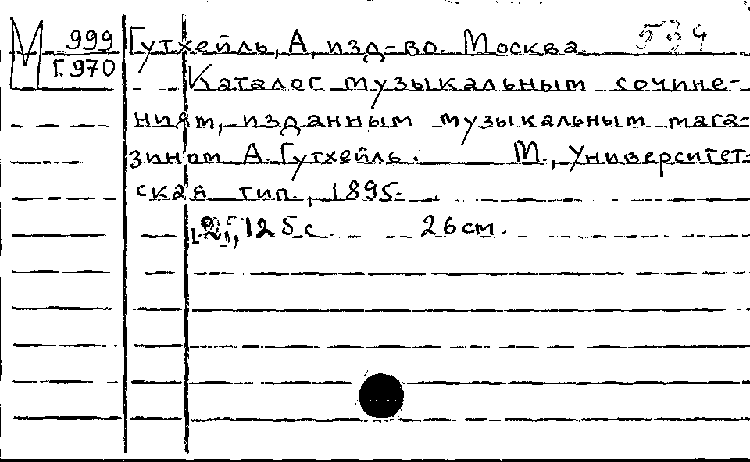 М 999 Гутхейль, А, изд-во. Москва 534
Г.970 Каталог музыкальным сочине-
ниям, изданным музыкальным мага-
зином А. Гутхейль. М., Университет-
ская тип., 1895.
[2], 125 с. 26 см.